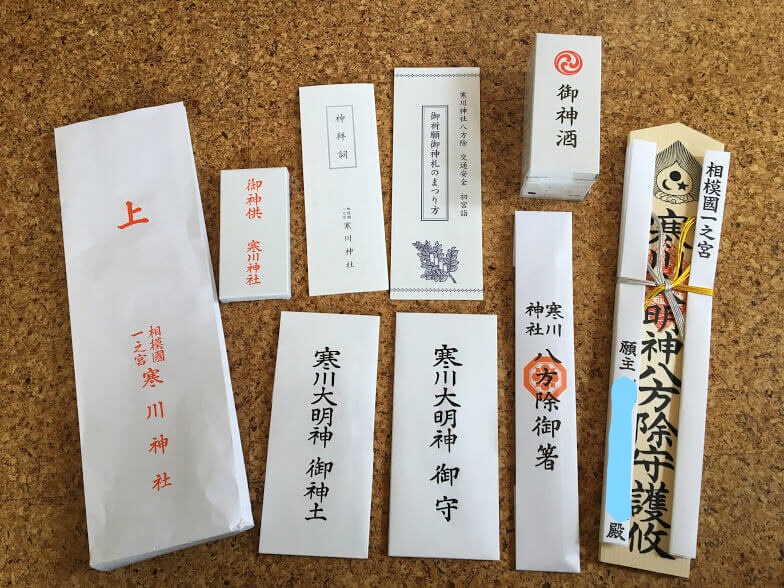 上
相模國
一之宮
寒川神社
御神供
寒川神社
神拜詞
相模國
一之宮
寒川神社
寒川神社八方除 交通安全 初宮詣
御祈願御神札のまつり方
御神酒
寒川大明神 御神土
寒川大明神 御守
寒川
神社
八方除御箸
相模國一之宮
寒川大明神八方除守護攸
願主
殿